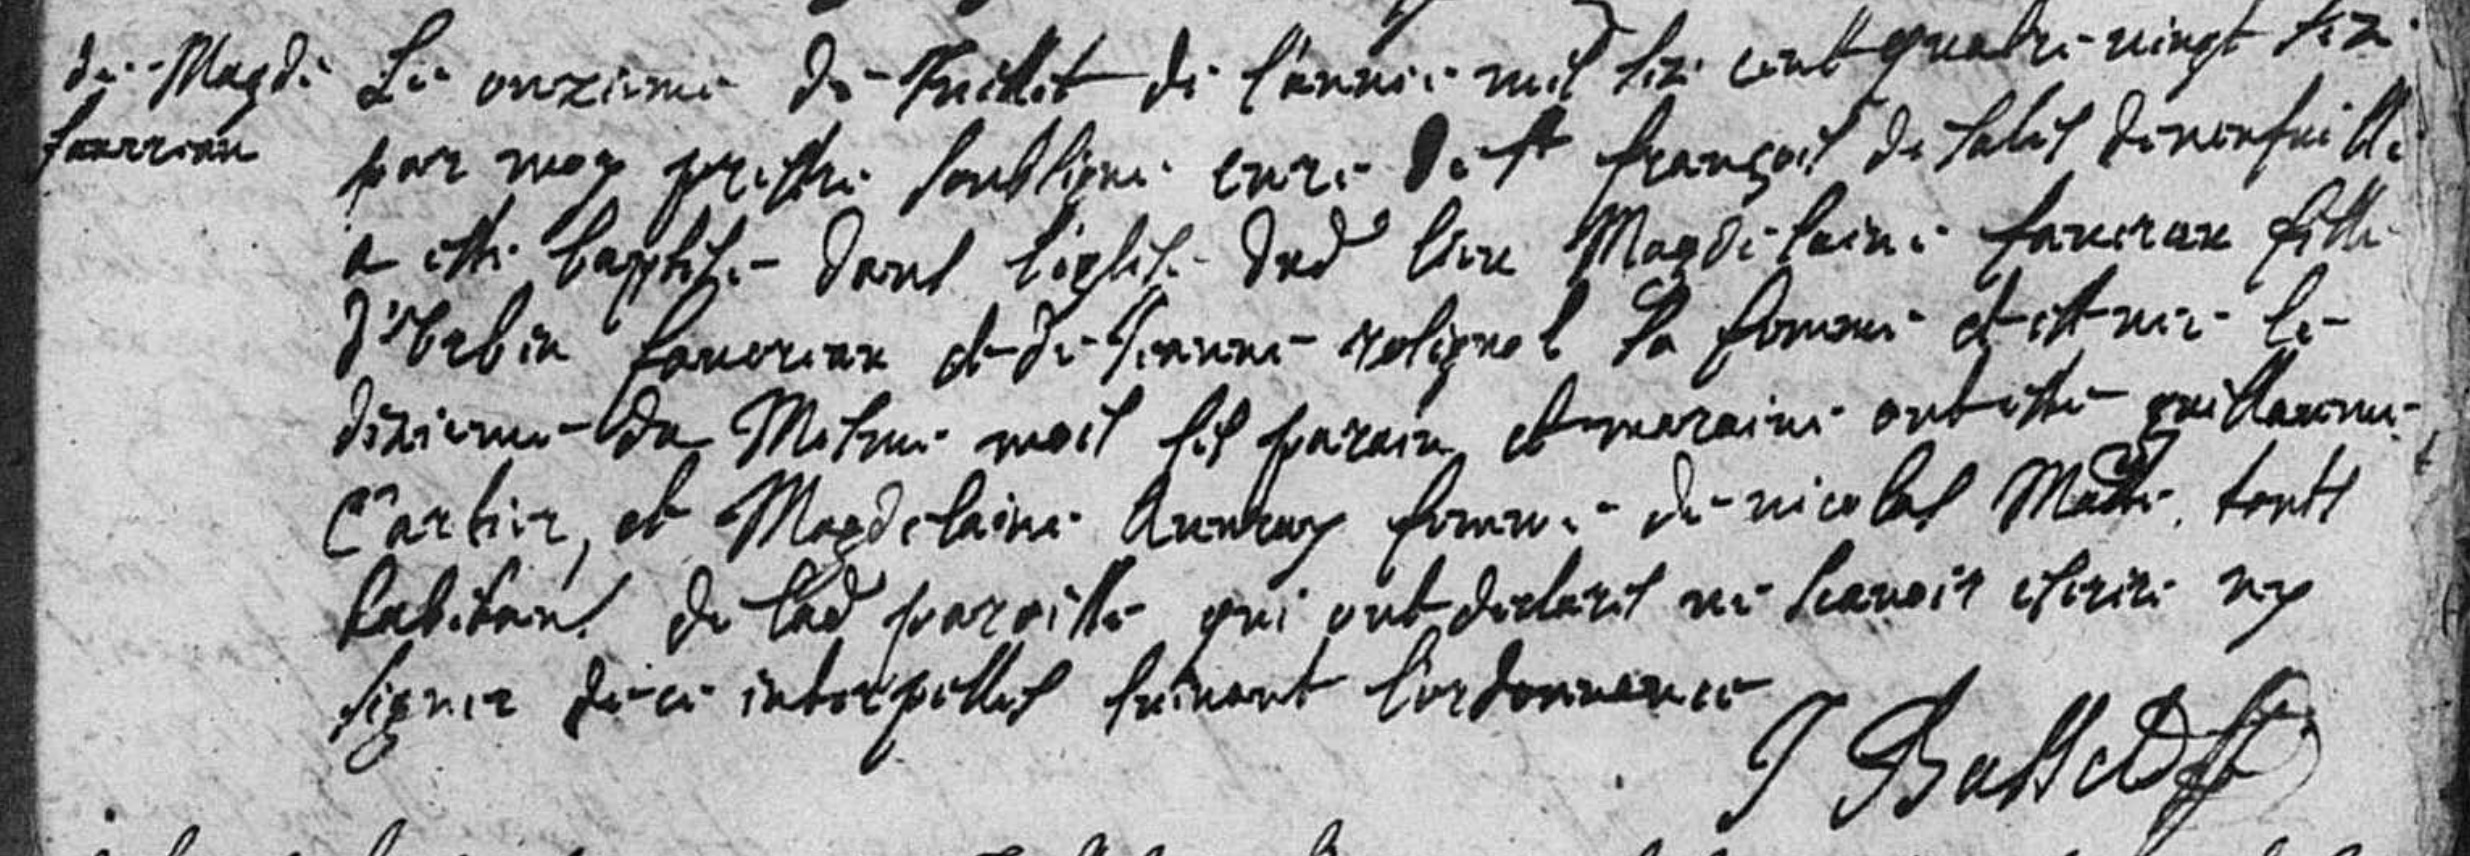 de Magde
fauereau
Le onzieme de Juillet de l'annee mil six cent quatre vingt six
par moy prestre soubsigné curé de st françois de Sales de neufuille
a esté baptisée dans l'eglise dud lieu Magdelaine fauereau fille
d'Vrbin fauereau et de Jeanne rosignol sa femme et est née le
dixieme du Mesme mois ses parain et maraine ont esté guillaume
Cartier, et Magdelaine Auuray femme de nicolas Matte. touts
habitans de lad paroisse qui ont declarés ne scauoir escrire ny
signer de ce interpellés suiuant l'ordonnance
J Basset pst